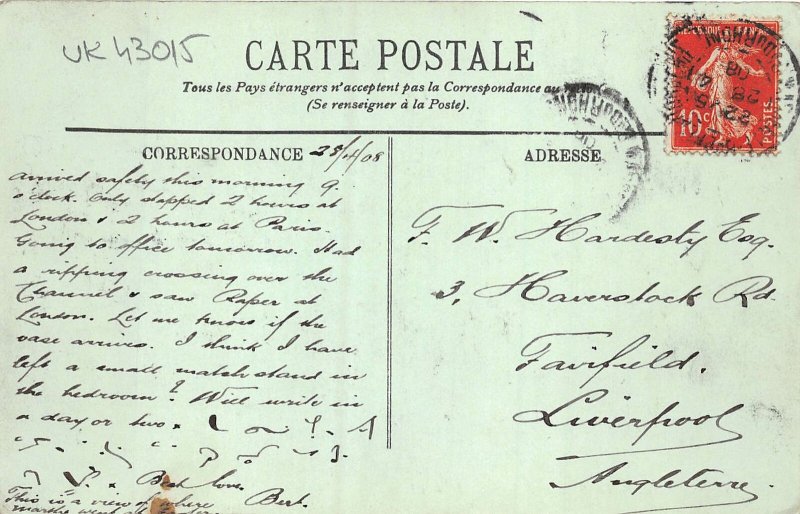 UK 43015
CARTE POSTALE
Tous les Pays étrangers n'acceptent pas la Correspondance au
(Se renseigner à la Poste).
CORRESPONDANCE
28/4/08
arrived safely this morning 9.
o'clock. Only stopped 2 hours at
London & 2 hours at Paris.
Going to office tomorrow. Had
a ripping crossing over the
Channel & saw Raper at
London. Let me know if the
vase arrives. I think I have
left a small match stand in
the bedroom? Will write in
a day or two.
Best love.
Bert.
This is a view of where
ADRESSE
F. W. Hardesty Esq.
3, Haverstock Rd
Fairfield.
Liverpool
Angleterre.
10c
POSTES